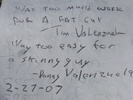 WAY TOO MUCH WORK
FOR A FAT GUY
Tim Valenzuela
Way too easy for
a skinny guy
Valenzuela
2-27-07